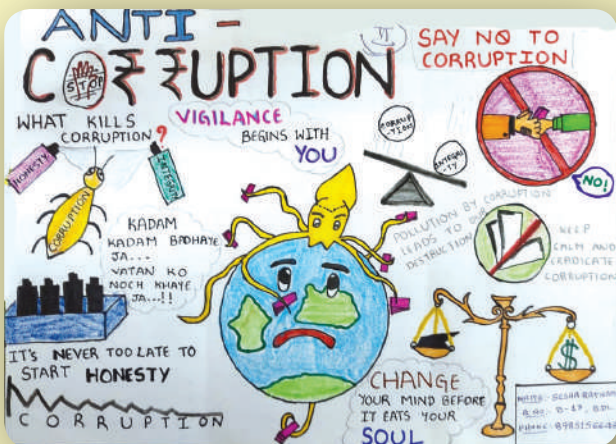 ANTI -
CORRUPTION
STOP
VI
SAY NO TO
CORRUPTION
WHAT KILLS
CORRUPTION ?
HONESTY
CORRUPTION
VIGILANCE
BEGINS WITH
YOU
CORRUP
-TION
INTEGRI
-TY
NO!
KADAM
KADAM BADHAYE
JA...
VATAN KO
NOCH KHAYE
JA...!!
POLLUTION BY CORRUPTION
LEADS TO OUR
DESTRUCTION
KEEP
CALM AND
ERADICATE
CORRUPTION
IT'S NEVER TOO LATE TO
START HONESTY
CORRUPTION
CHANGE
YOUR MIND BEFORE
IT EATS YOUR
SOUL
$
NAME:
PHONE: